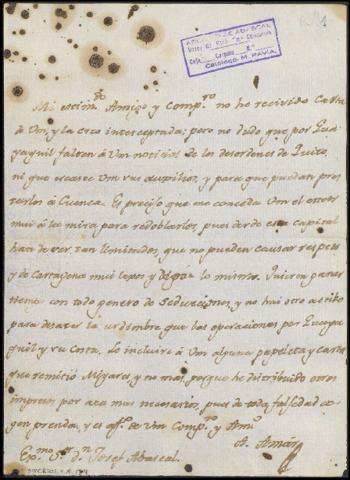 Mi estimdo Amigo, y Compro no he recivido Carta
de Vm y la creo interceptada; pero no dudo que por Gua
yaquil falten á Vm noticias de los desordenes de Quito,
ni que escasee Vm sus auxilios, y para que puedan pres
tarlos á Cuenca. Es preciso que me conceda Vm el estar
mui á la mira para redoblarlos, pues desde esta capital
han de ser tan limitados, que no pueden causar respeto
y de Cartagena mui lejos y digo lo mismo. Quieren ganar
tiempo con todo genero de Seducciones, y no hai otro arbitrio
para desatar la urdimbre que las operaciones por Guaya
quil y su Costa. Le incluire á Vm alguna papeleta y cartas
que remitió Miyares y no mas, porque he distribuido otros
impresos por aca mas necesarios pues de toda falsedad co
gen prenda, y es afmo. de Vm Compro. y Amo.
A. Amar
Exmo. Sor. dn. Josef Abascal.